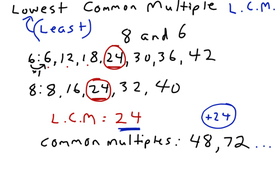 Lowest Common Multiple L.C.M.
(Least)
8 and 6
6: 6, 12, 18, 24, 30, 36, 42
+1
8: 8, 16, 24, 32, 40
L.C.M: 24
+24
Common multiples: 48, 72 ...